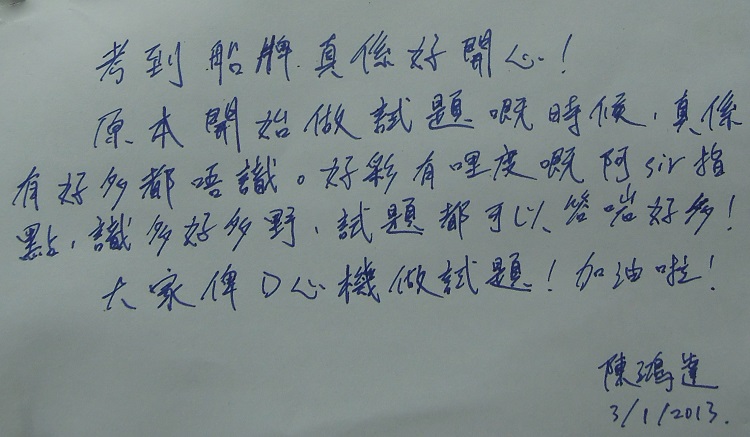 考到船牌真係好開心！
原本開始做試題嘅時候，真係
有好多都唔識。好彩有哩度嘅阿sir指
點，識多好多野，試題都可以答啱好多！
大家俾D心機做試題！加油啦！
陳鴻達
3/1/2013.